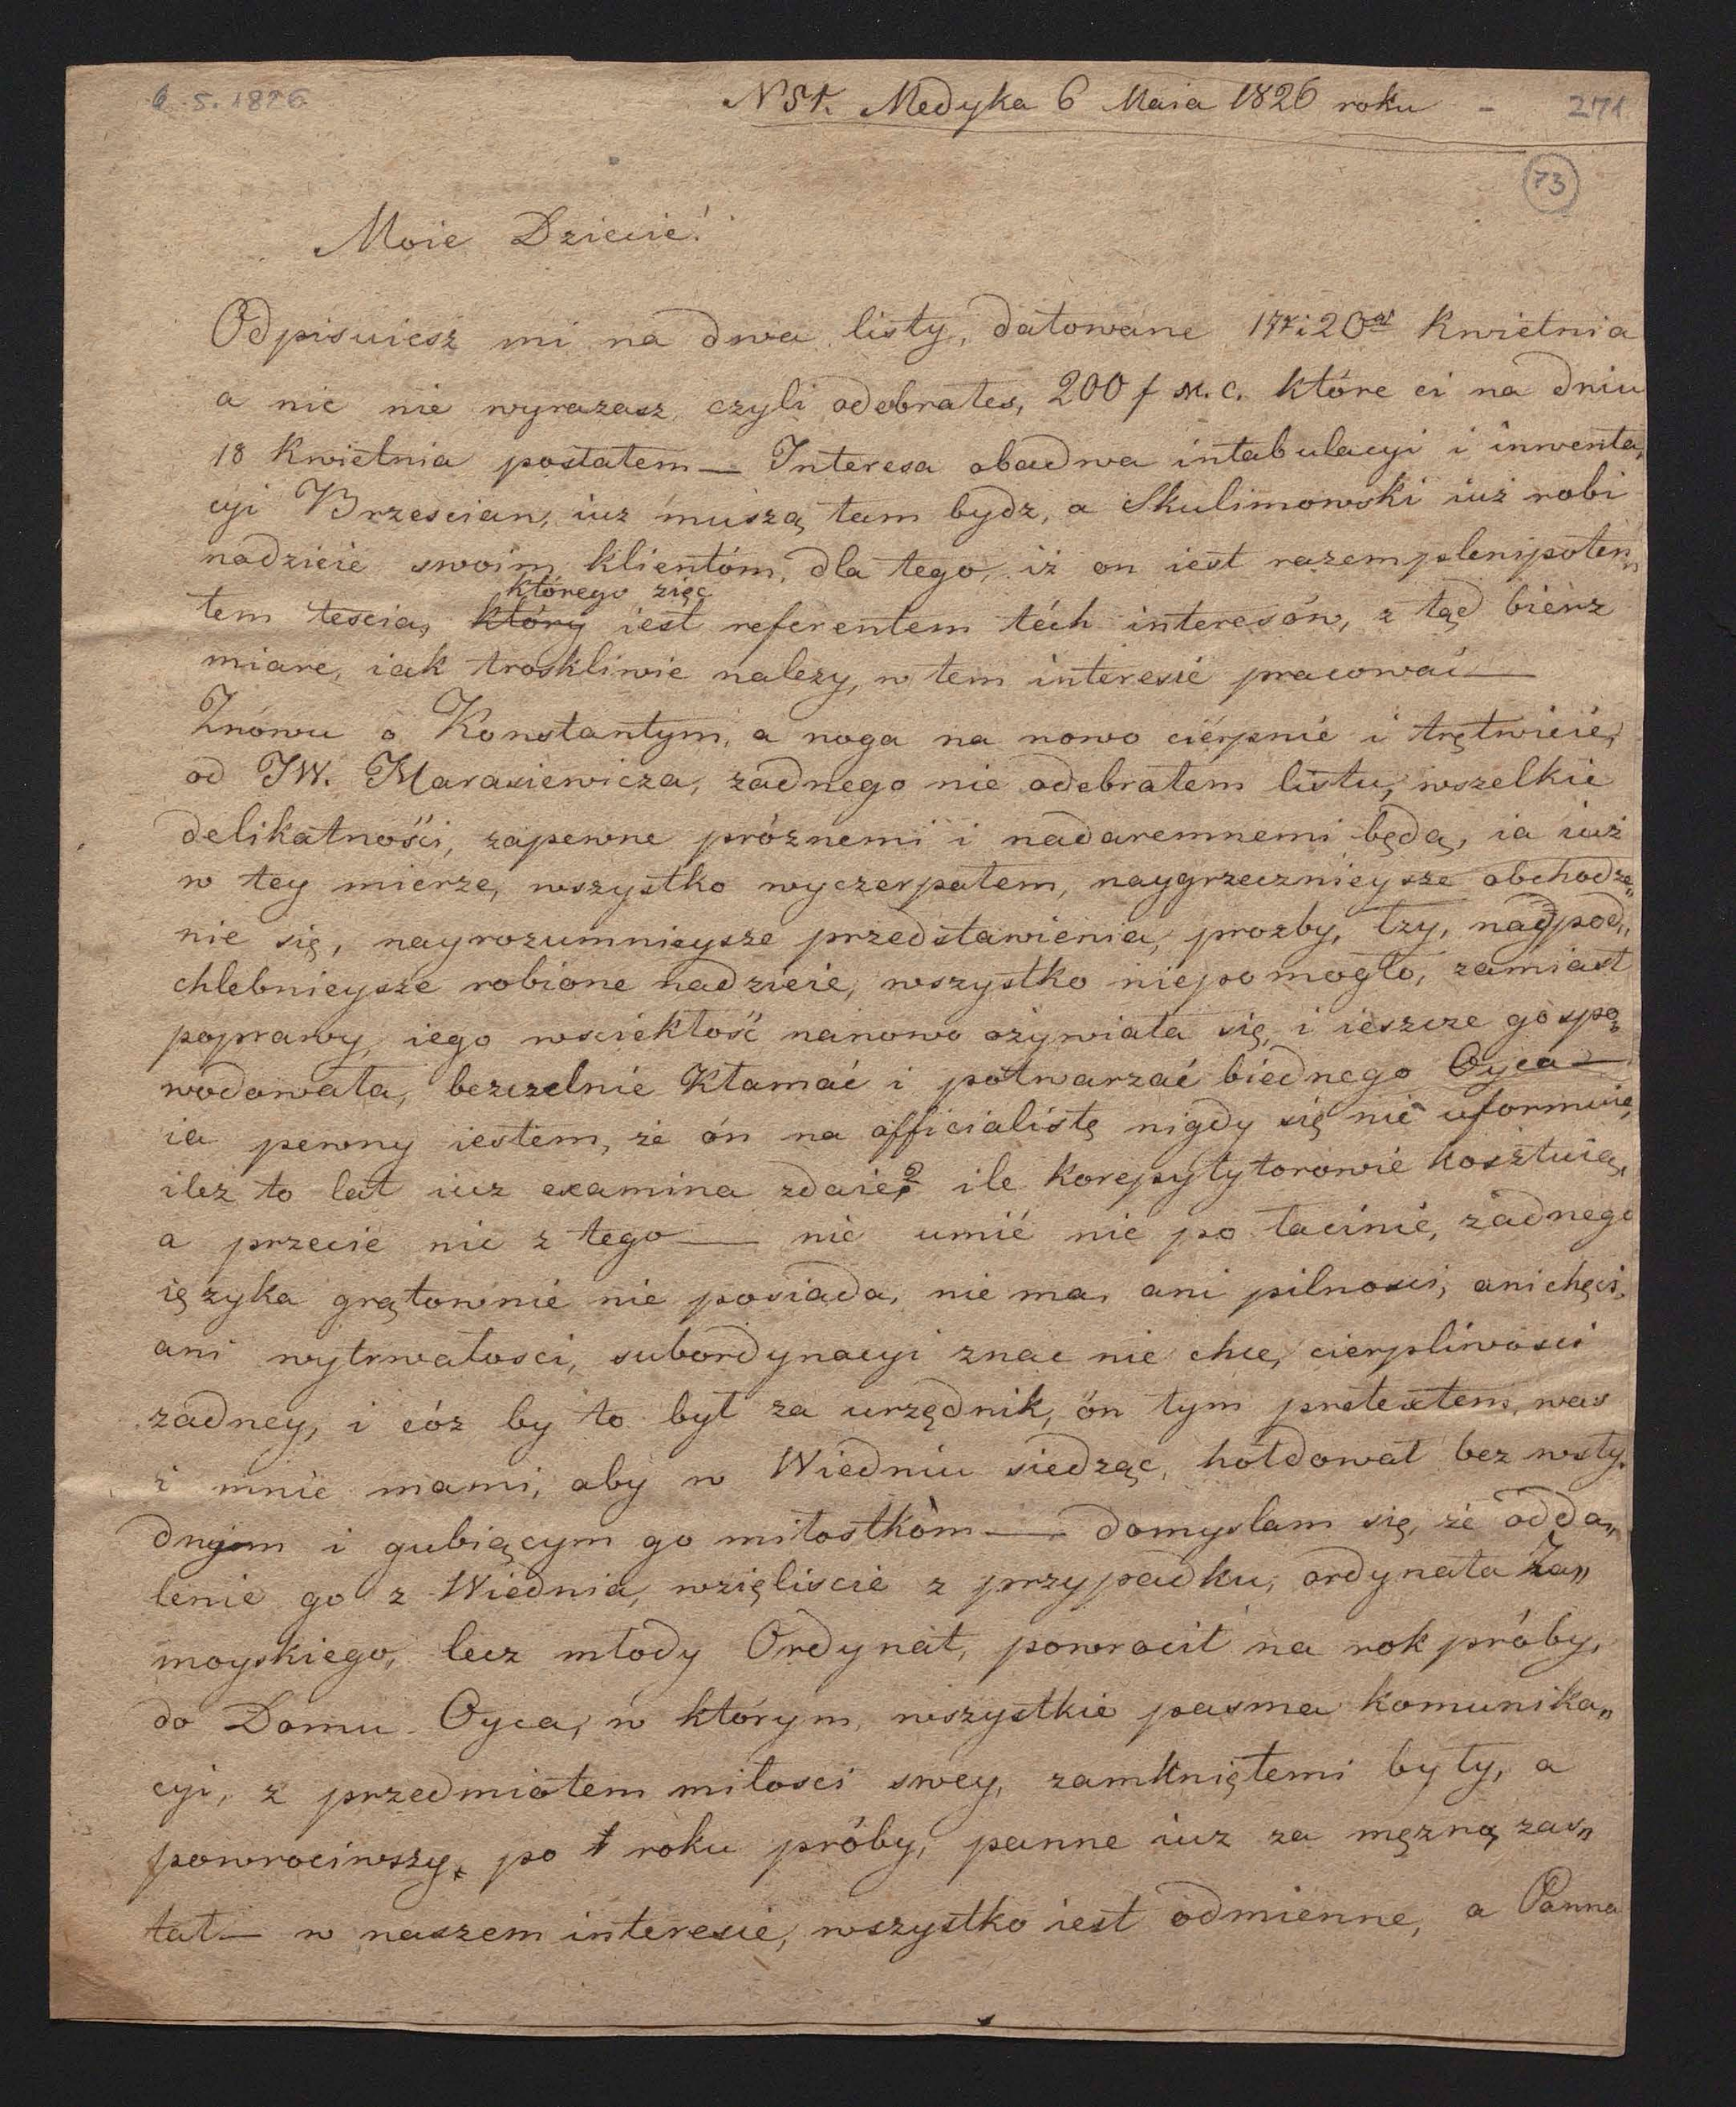 6.5.1826
N 51. Medyka 6 Maia 1826 roku - 271.
73
Moie Dziecie!
Odpisuiesz mi na dwa listy, datowane 17 i 20 Kwietnia
a nic nie wyrazasz, czyli odebrałes, 200 f M.C. które ci na dniu
18 Kwietnia posłałem — Interesa obadwa intabulacyi i inwenta„
cyi Brzescian, iuz muszą tam bydz, a Skulimowski iuż robi
nadzieie swoim klientóm, dla tego, iż on iest razem plenipoten„
którego zięc
tem tescia, który iest referentem téch interesów, z tąd bierz
miarę, iak troskliwie nalezy, w tem interesie pracować —
Znówu o Konstantym, a noga na nowo cierpnie i trętwieie,
od JW. Marasiewicza, żadnego nie odebrałem listu, wszelkie
delikatności, zapewne próżnemi i nadaremnemi będą, ia iuż
w tey mierze, wszystko wyczerpałem, naygrzecznieysze obchodze„
nie się, nayrozumnieysze przedstawienia, prozby, łzy, naypod„
chlebnieysze robione nadzieie, wszystko niepomogło, zamiast
poprawy, iego wsciekłość nanowo ożywiała się, i ieszcze go spo„
wodowała, bezczelnie kłamać i potwarzać biednego Oyca —
ia pewny iestem, że ón na officialistę nigdy się nie uformuie,
ileż to lat iuz examina zdaie? ile korepytytorowie kosztuią,
a przecie nic z tego — nic umié nie po łacinie, żadnego
ięzyka grątownie nie posiada, nie ma, ani pilnosci, ani chęci,
ani wytrwałosci, subordynacyi znac nie chce, cierpliwosci
zadney, i cóz by to był za urzędnik, ón tym pretextem, was
i mnie mami, aby w Wiedniu siedząc, hołdował bez wsty„
dnym i gubiącym go miłostkòm — domyslam się, że odda„
lenie go z Wiednia, wzięliscie z przypadku, ordynata Za„
moyskiego, lecz młody Ordynat, powrocił na rok próby,
do Domu Oyca, w którym, wszystkie pasma komunika„
cyi, z przedmiotem miłosci swey, zamkniętemi były, a
powrociwszy, po 1 roku próby, panne iuz za męzną zas„
tał — w naszem interesie, wszystko iest odmienne, a Panna